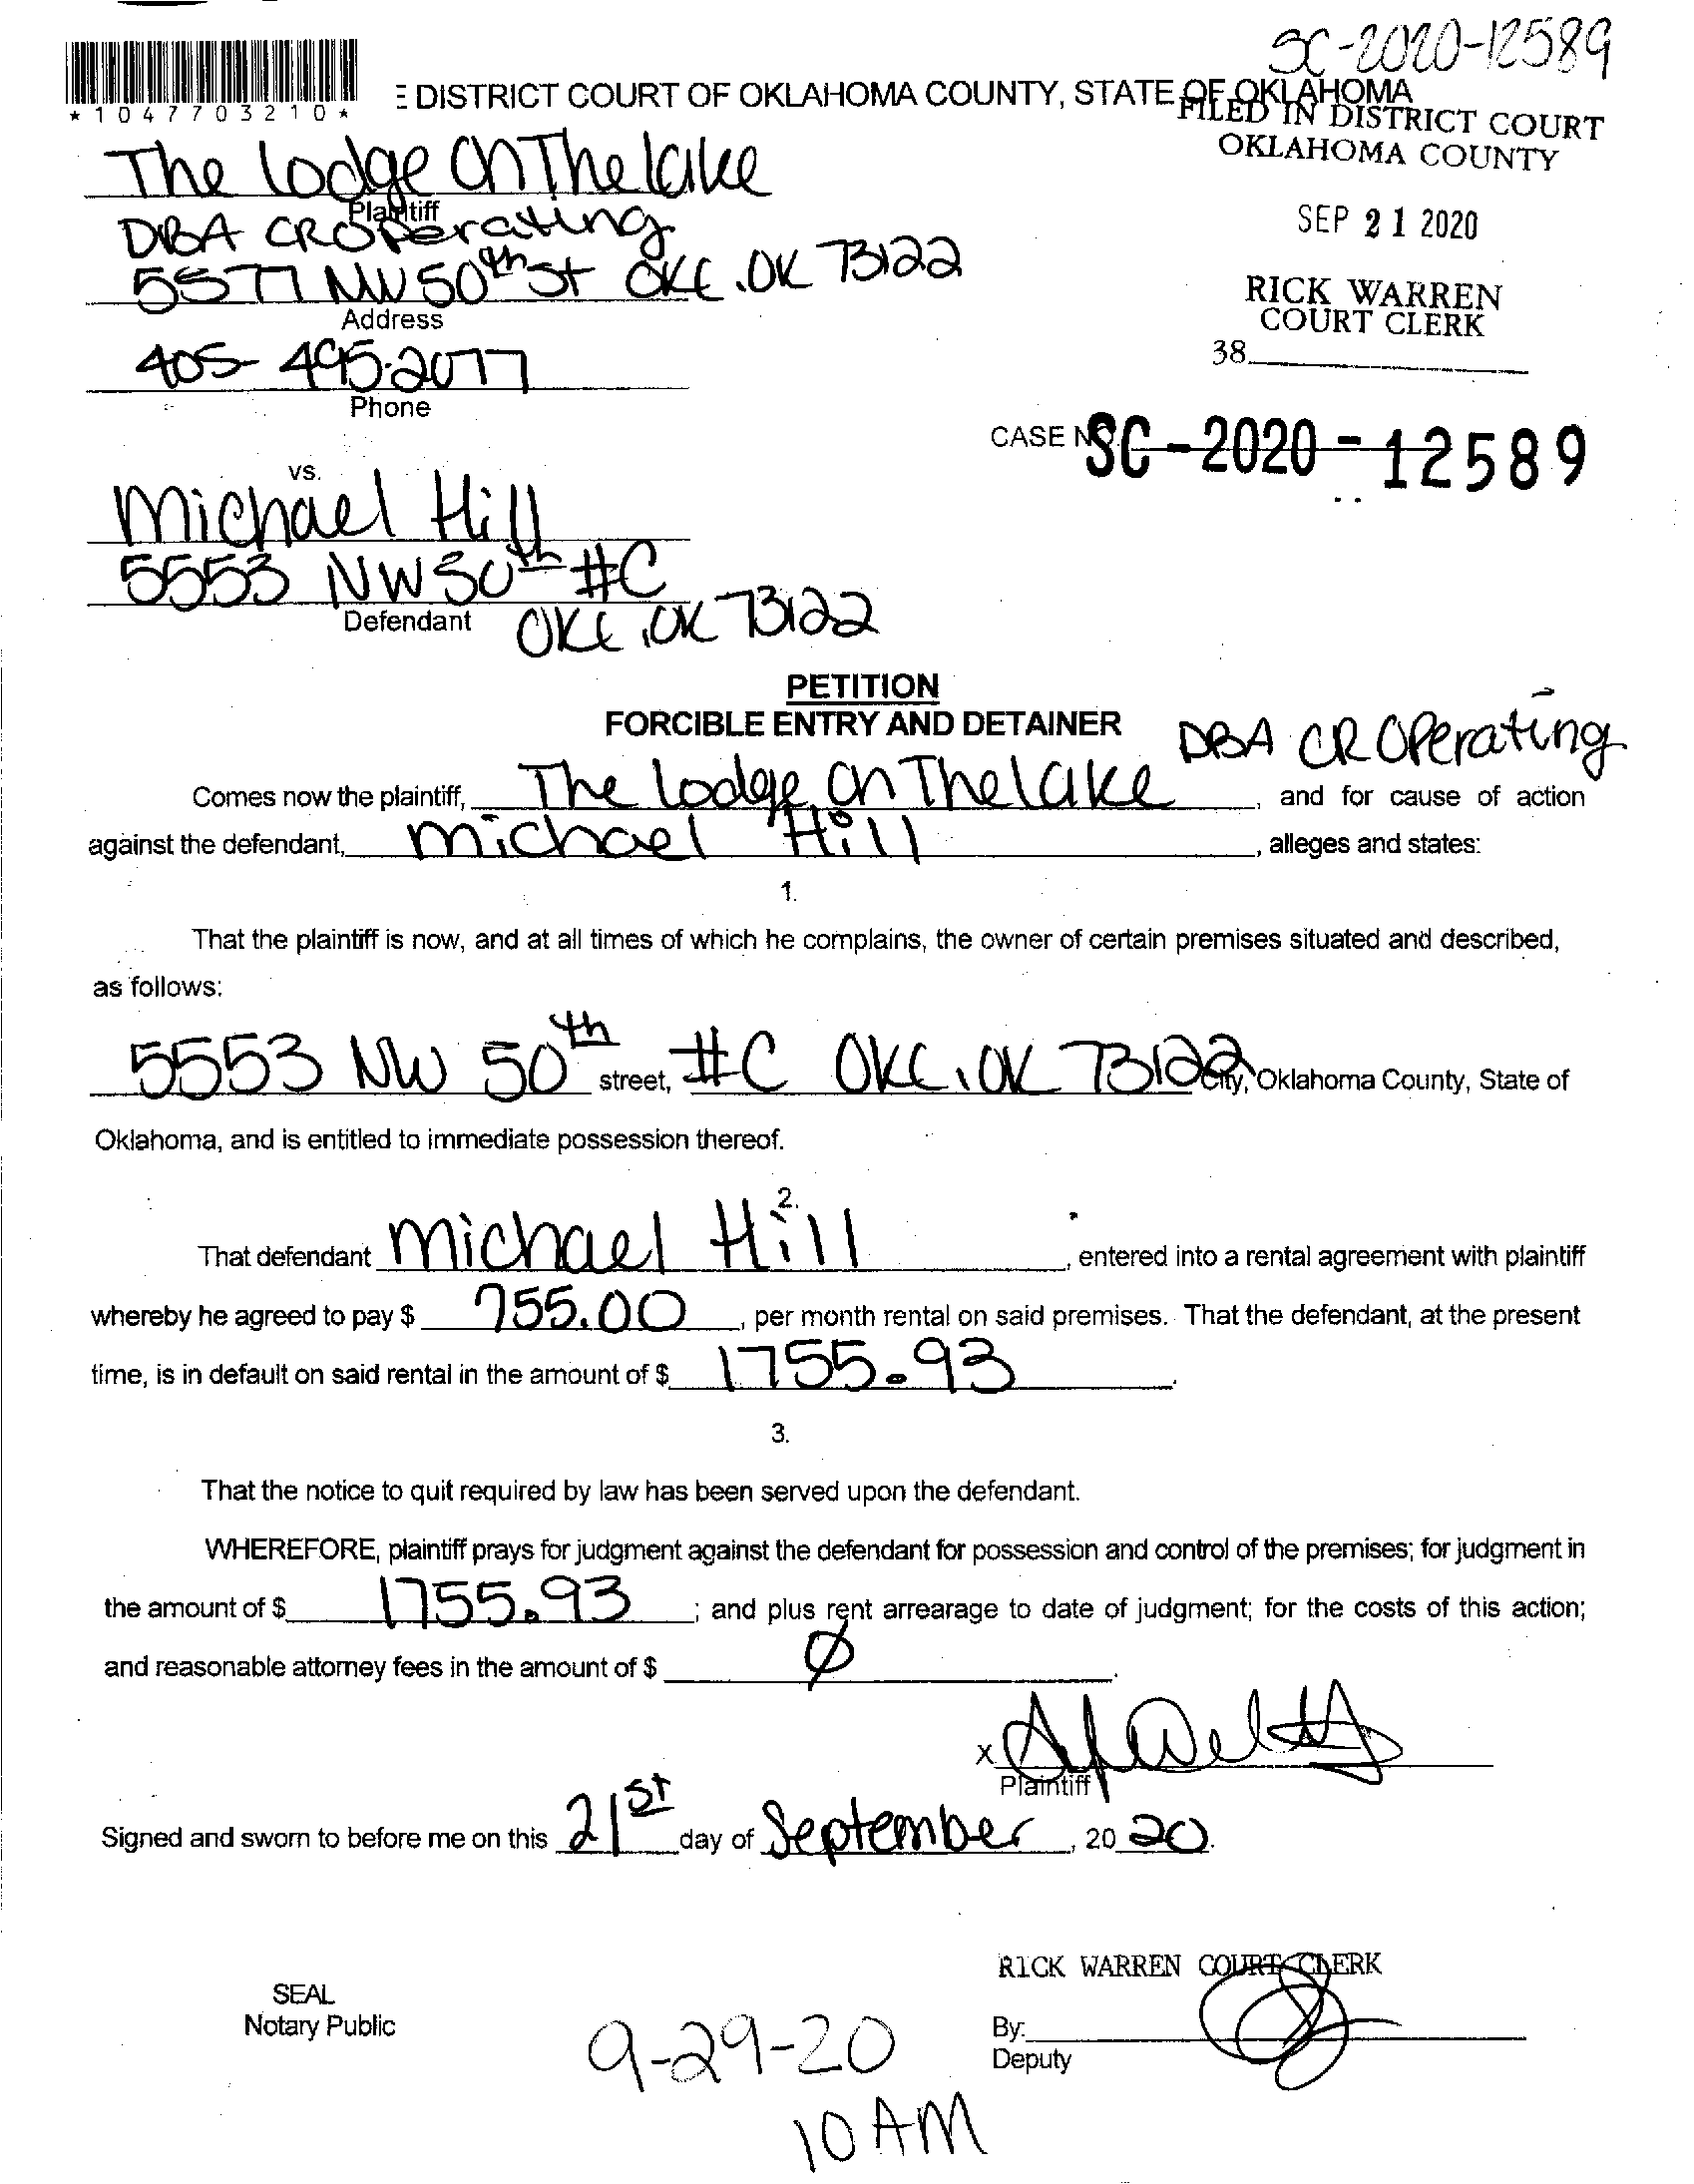 SC-2020-12589
*1047703210*
E DISTRICT COURT OF OKLAHOMA COUNTY, STATE OF OKLAHOMA
FILED IN DISTRICT COURT
OKLAHOMA COUNTY
The lodge On The lake
Plaintiff
DBA CROperating
SEP 21 2020
5577 NW 50th St OKC.OK 73122
Address
RICK WARREN
COURT CLERK
405-495-2077
38
Phone
CASE NO. SC-2020-12589
vs.
Michael Hill
5553 NW 50th #C
Defendant
OKC, OK 73122
PETITION
FORCIBLE ENTRY AND DETAINER
DBA CR OPerating
Comes now the plaintiff, The lodge On The lake, and for cause of action
against the defendant, Michael Hill, alleges and states:
1.
That the plaintiff is now, and at all times of which he complains, the owner of certain premises situated and described,
as follows:
5553 NW 50th street, #C OKC, OK 73122 City, Oklahoma County, State of
Oklahoma, and is entitled to immediate possession thereof.
2.
That defendant Michael Hill, entered into a rental agreement with plaintiff
whereby he agreed to pay $ 755.00, per month rental on said premises. That the defendant, at the present
time, is in default on said rental in the amount of $ 1755.93.
3.
That the notice to quit required by law has been served upon the defendant.
WHEREFORE, plaintiff prays for judgment against the defendant for possession and control of the premises; for judgment in
the amount of $ 1755.93; and plus rent arrearage to date of judgment; for the costs of this action;
and reasonable attorney fees in the amount of $ Ø.
x
Plaintiff
Signed and sworn to before me on this 21st day of September, 20 20.
RICK WARREN COURT CLERK
SEAL
Notary Public
By:
Deputy
9-29-20
10 AM